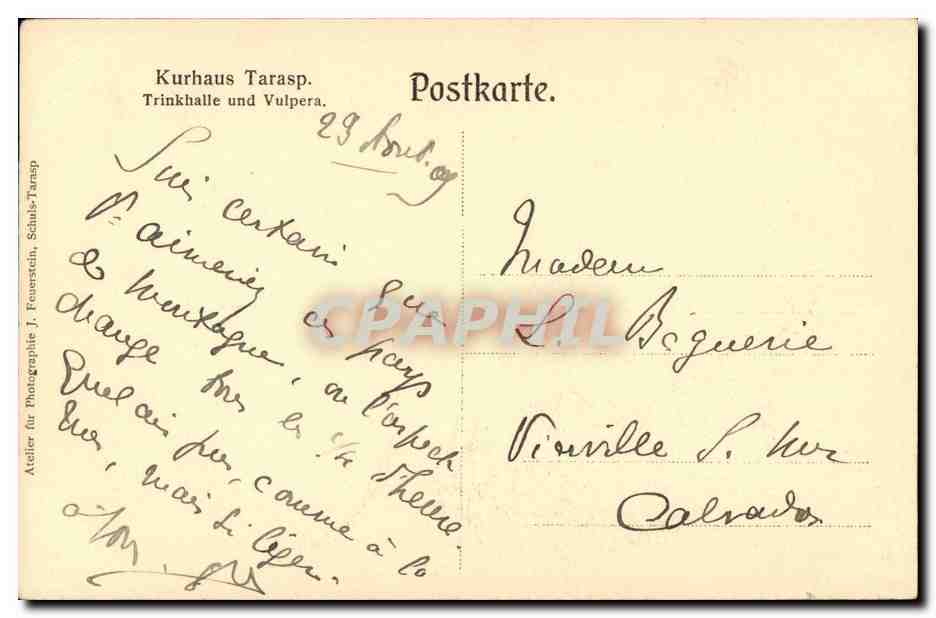 Kurhaus Tarasp.
Trinkhalle und Vulpera.
Postkarte.
Atelier für Photographie J. Feuerstein, Schuls-Tarasp
29 Aout 09
Suis certain que
aimeriez ce pays
de montagne, où l'aspect
change tous les 1/4 d'heure.
Quel air pur, comme à la
mer, mais si léger.
à
Madem
L. Biguerie
Vierville S. Mer
Calvados
CPAPHIL